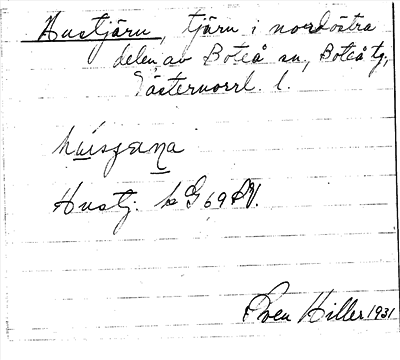 Hustjärn, tjärn i nordöstra
delen av Boteå sn, Boteå tg,
Västernorrl. l.
Hustj. k G 69 RV.
Sven Hiller 1931